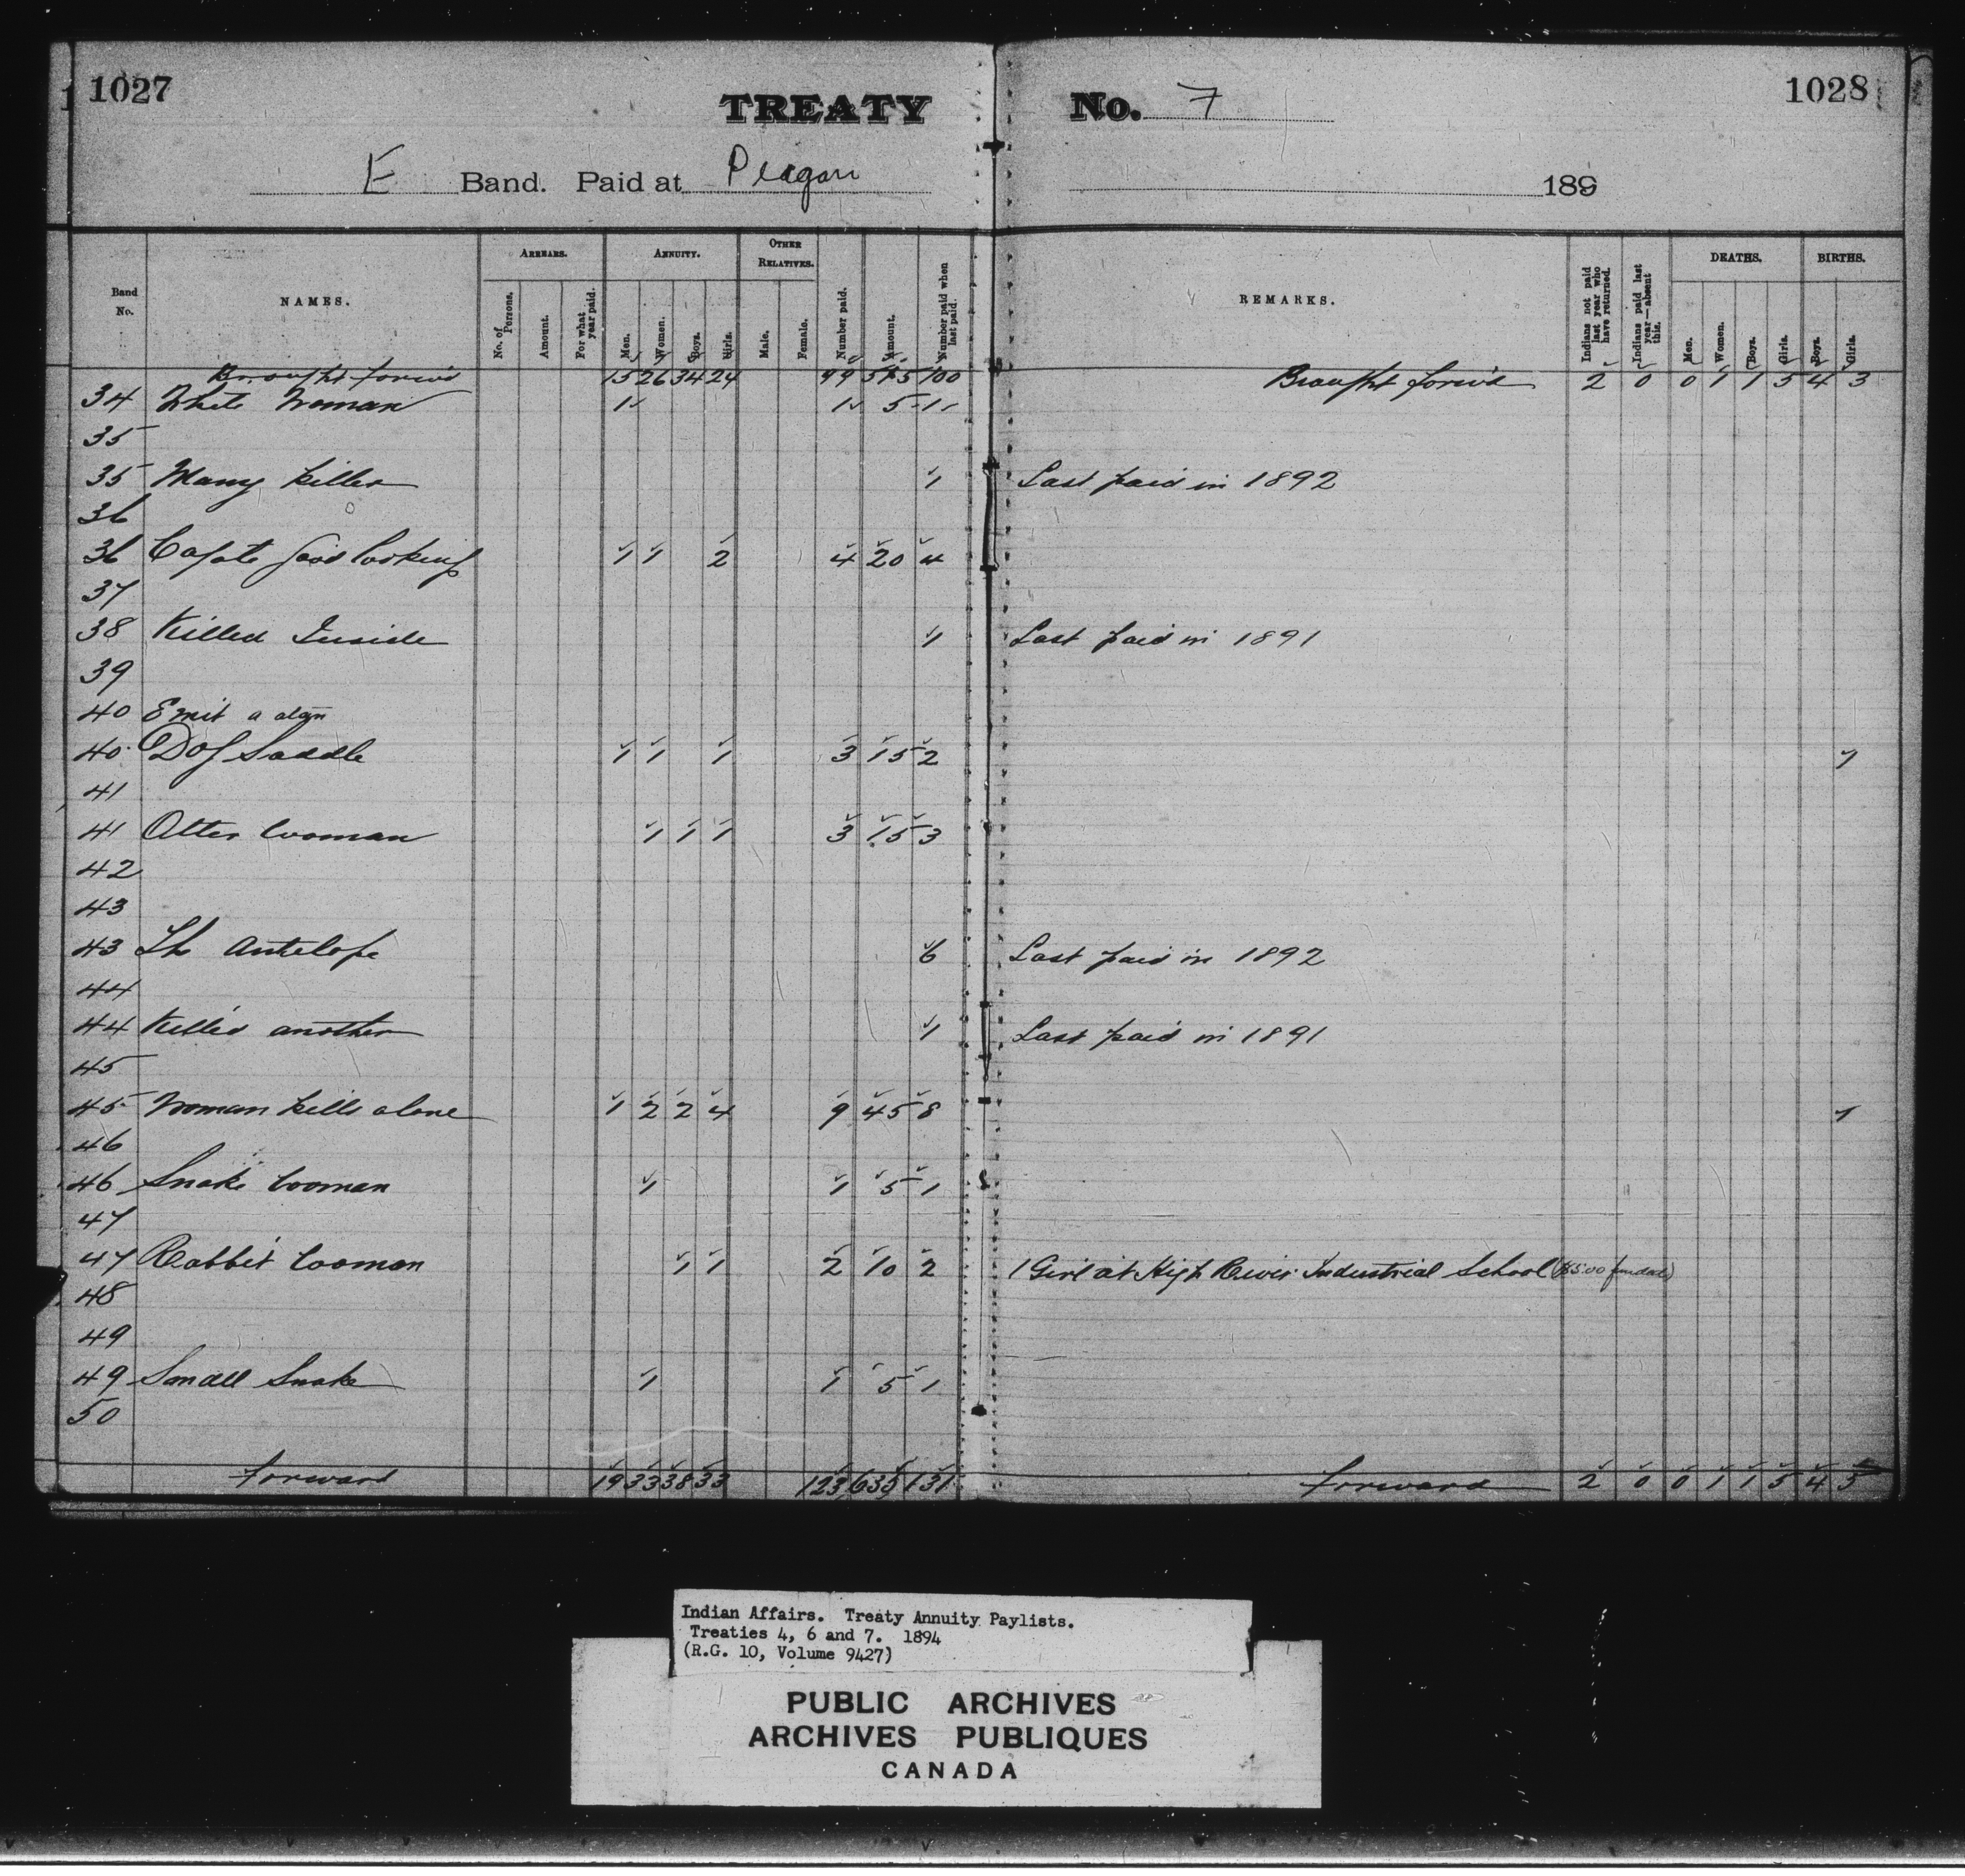 1027
1028
TREATY No. 7
E Band. Paid at Piegan 189
Band No.
NAMES.
ARREARS.
No. of Persons.
Amount.
For what year paid.
ANNUITY.
Men.
Women.
Boys.
Girls.
OTHER RELATIVES.
Male.
Female.
Number paid.
Amount.
Number paid when last paid.
REMARKS.
Indians not paid last year who have returned.
Indians paid last year—absent this.
DEATHS.
Men.
Women.
Boys.
Girls.
BIRTHS.
Boys.
Girls.
Brought forw'd 15 26 34 24 99 515 100 Brought forw'd 2 0 0 1 1 5 4 3
34 White Woman 1 1 5 1
35
35 Many Killer 1 Last paid in 1892
36
36 good looking 1 1 2 4 20 4
37
38 Killed Inside 1 Last paid in 1891
39
40 Emit a
40 Dog Saddle 1 1 1 3 15 2 1
41
41 Otter Woman 1 1 1 3 15 3
42
43
43 Antelope 6 Last paid in 1892
44
44 Killed another 1 Last paid in 1891
45
45 Woman kills alone 1 2 2 4 9 45 8 1
46
46 Snake Woman 1 1 5 1
47
47 Rabbit Woman 1 1 2 10 2 1 Girl at High River Industrial School
48
49
49 Small Snake 1 1 5 1
50
Forward 19 33 38 33 123 635 131 Forward 2 0 0 1 1 5 4 5
Indian Affairs. Treaty Annuity Paylists.
Treaties 4, 6 and 7. 1894
(R.G. 10, Volume 9427)
PUBLIC ARCHIVES
ARCHIVES PUBLIQUES
CANADA